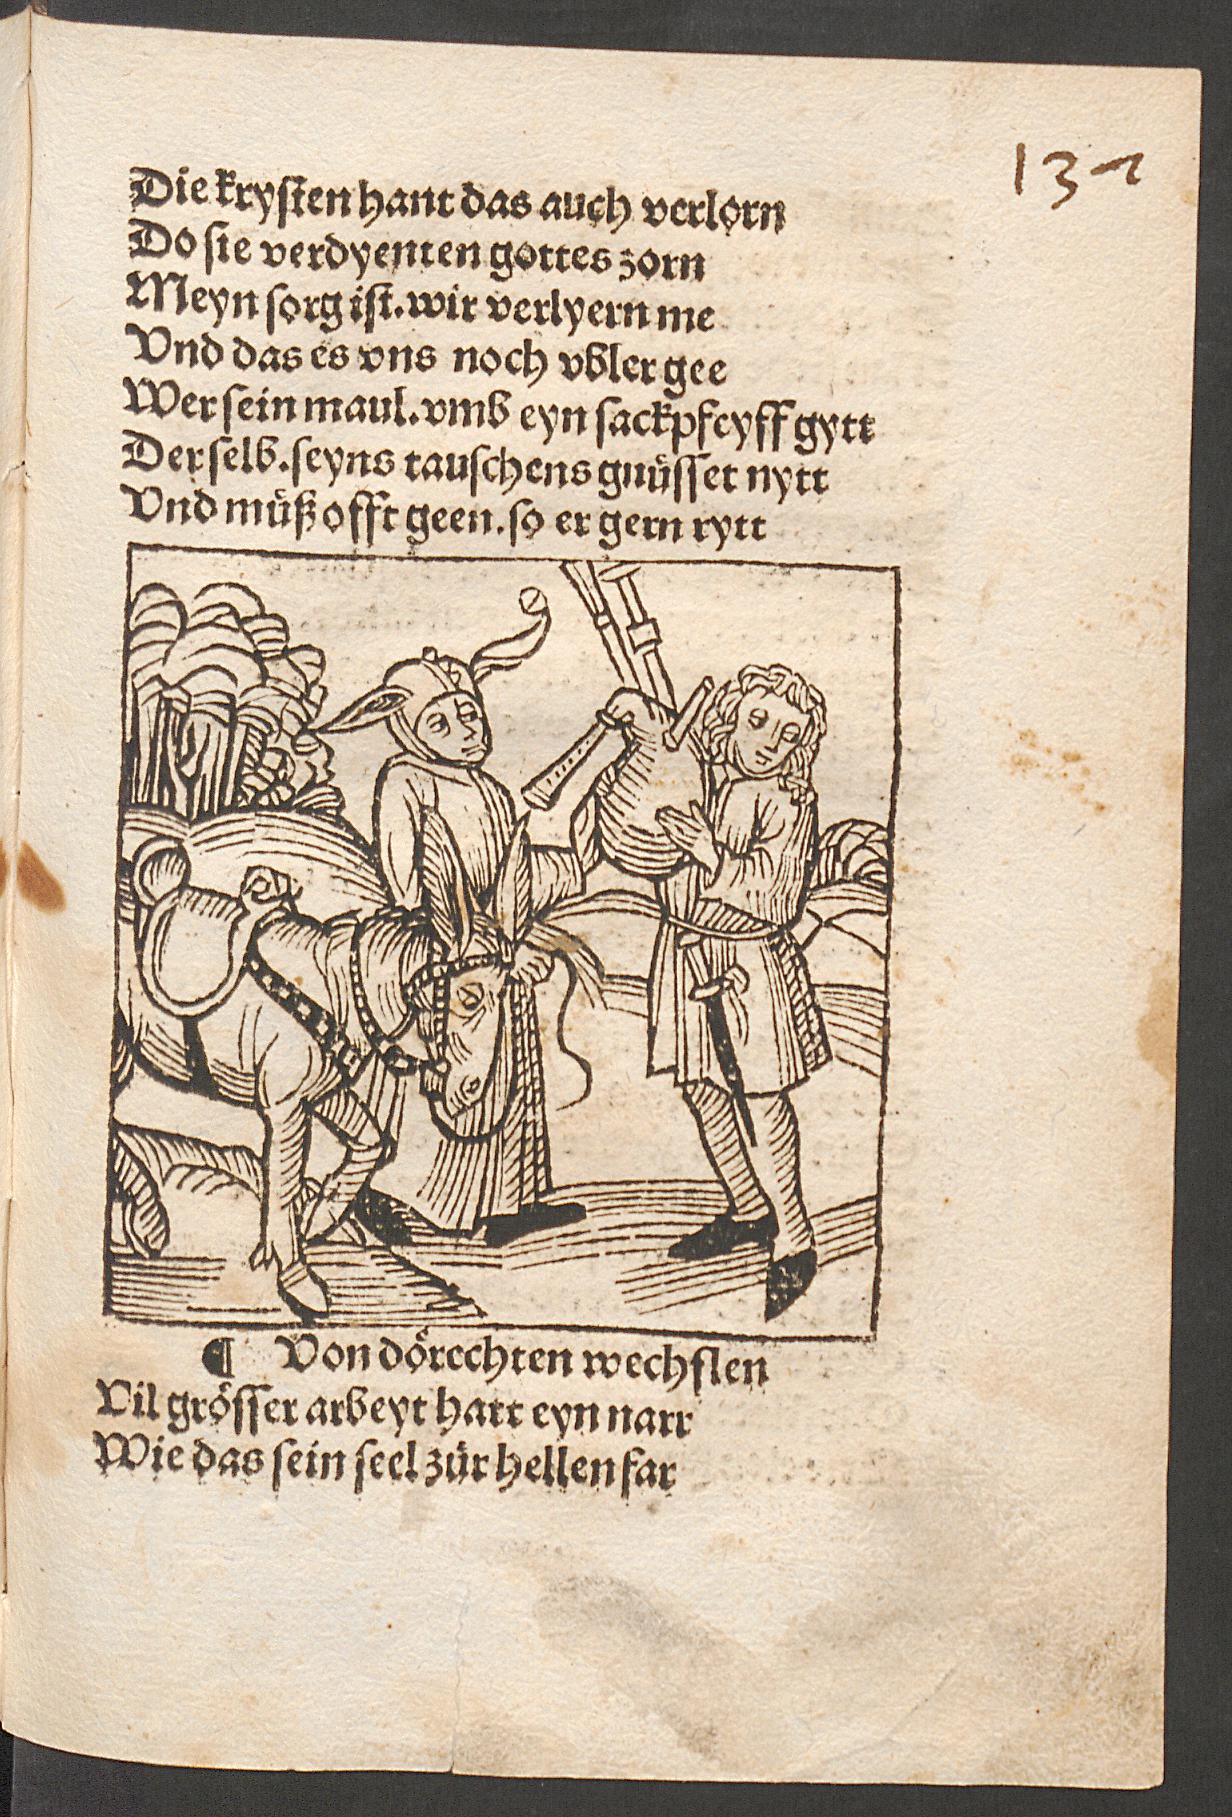 132
Die krysten hant das auch verlorn
Do sie verdyenten gottes zorn
Meyn sorg ist. wir verlyern me
Vnd das es vns noch vbler gee
Wer sein maul. vmb eyn sackpfeyff gytt
Der selb. seyns tauschens gnüsset nytt
Vnd müß offt geen. so er gern rytt
¶ Von dörechten wechslen
Vil grösser arbeyt hatt eyn narr
Wie das sein seel zür hellen far